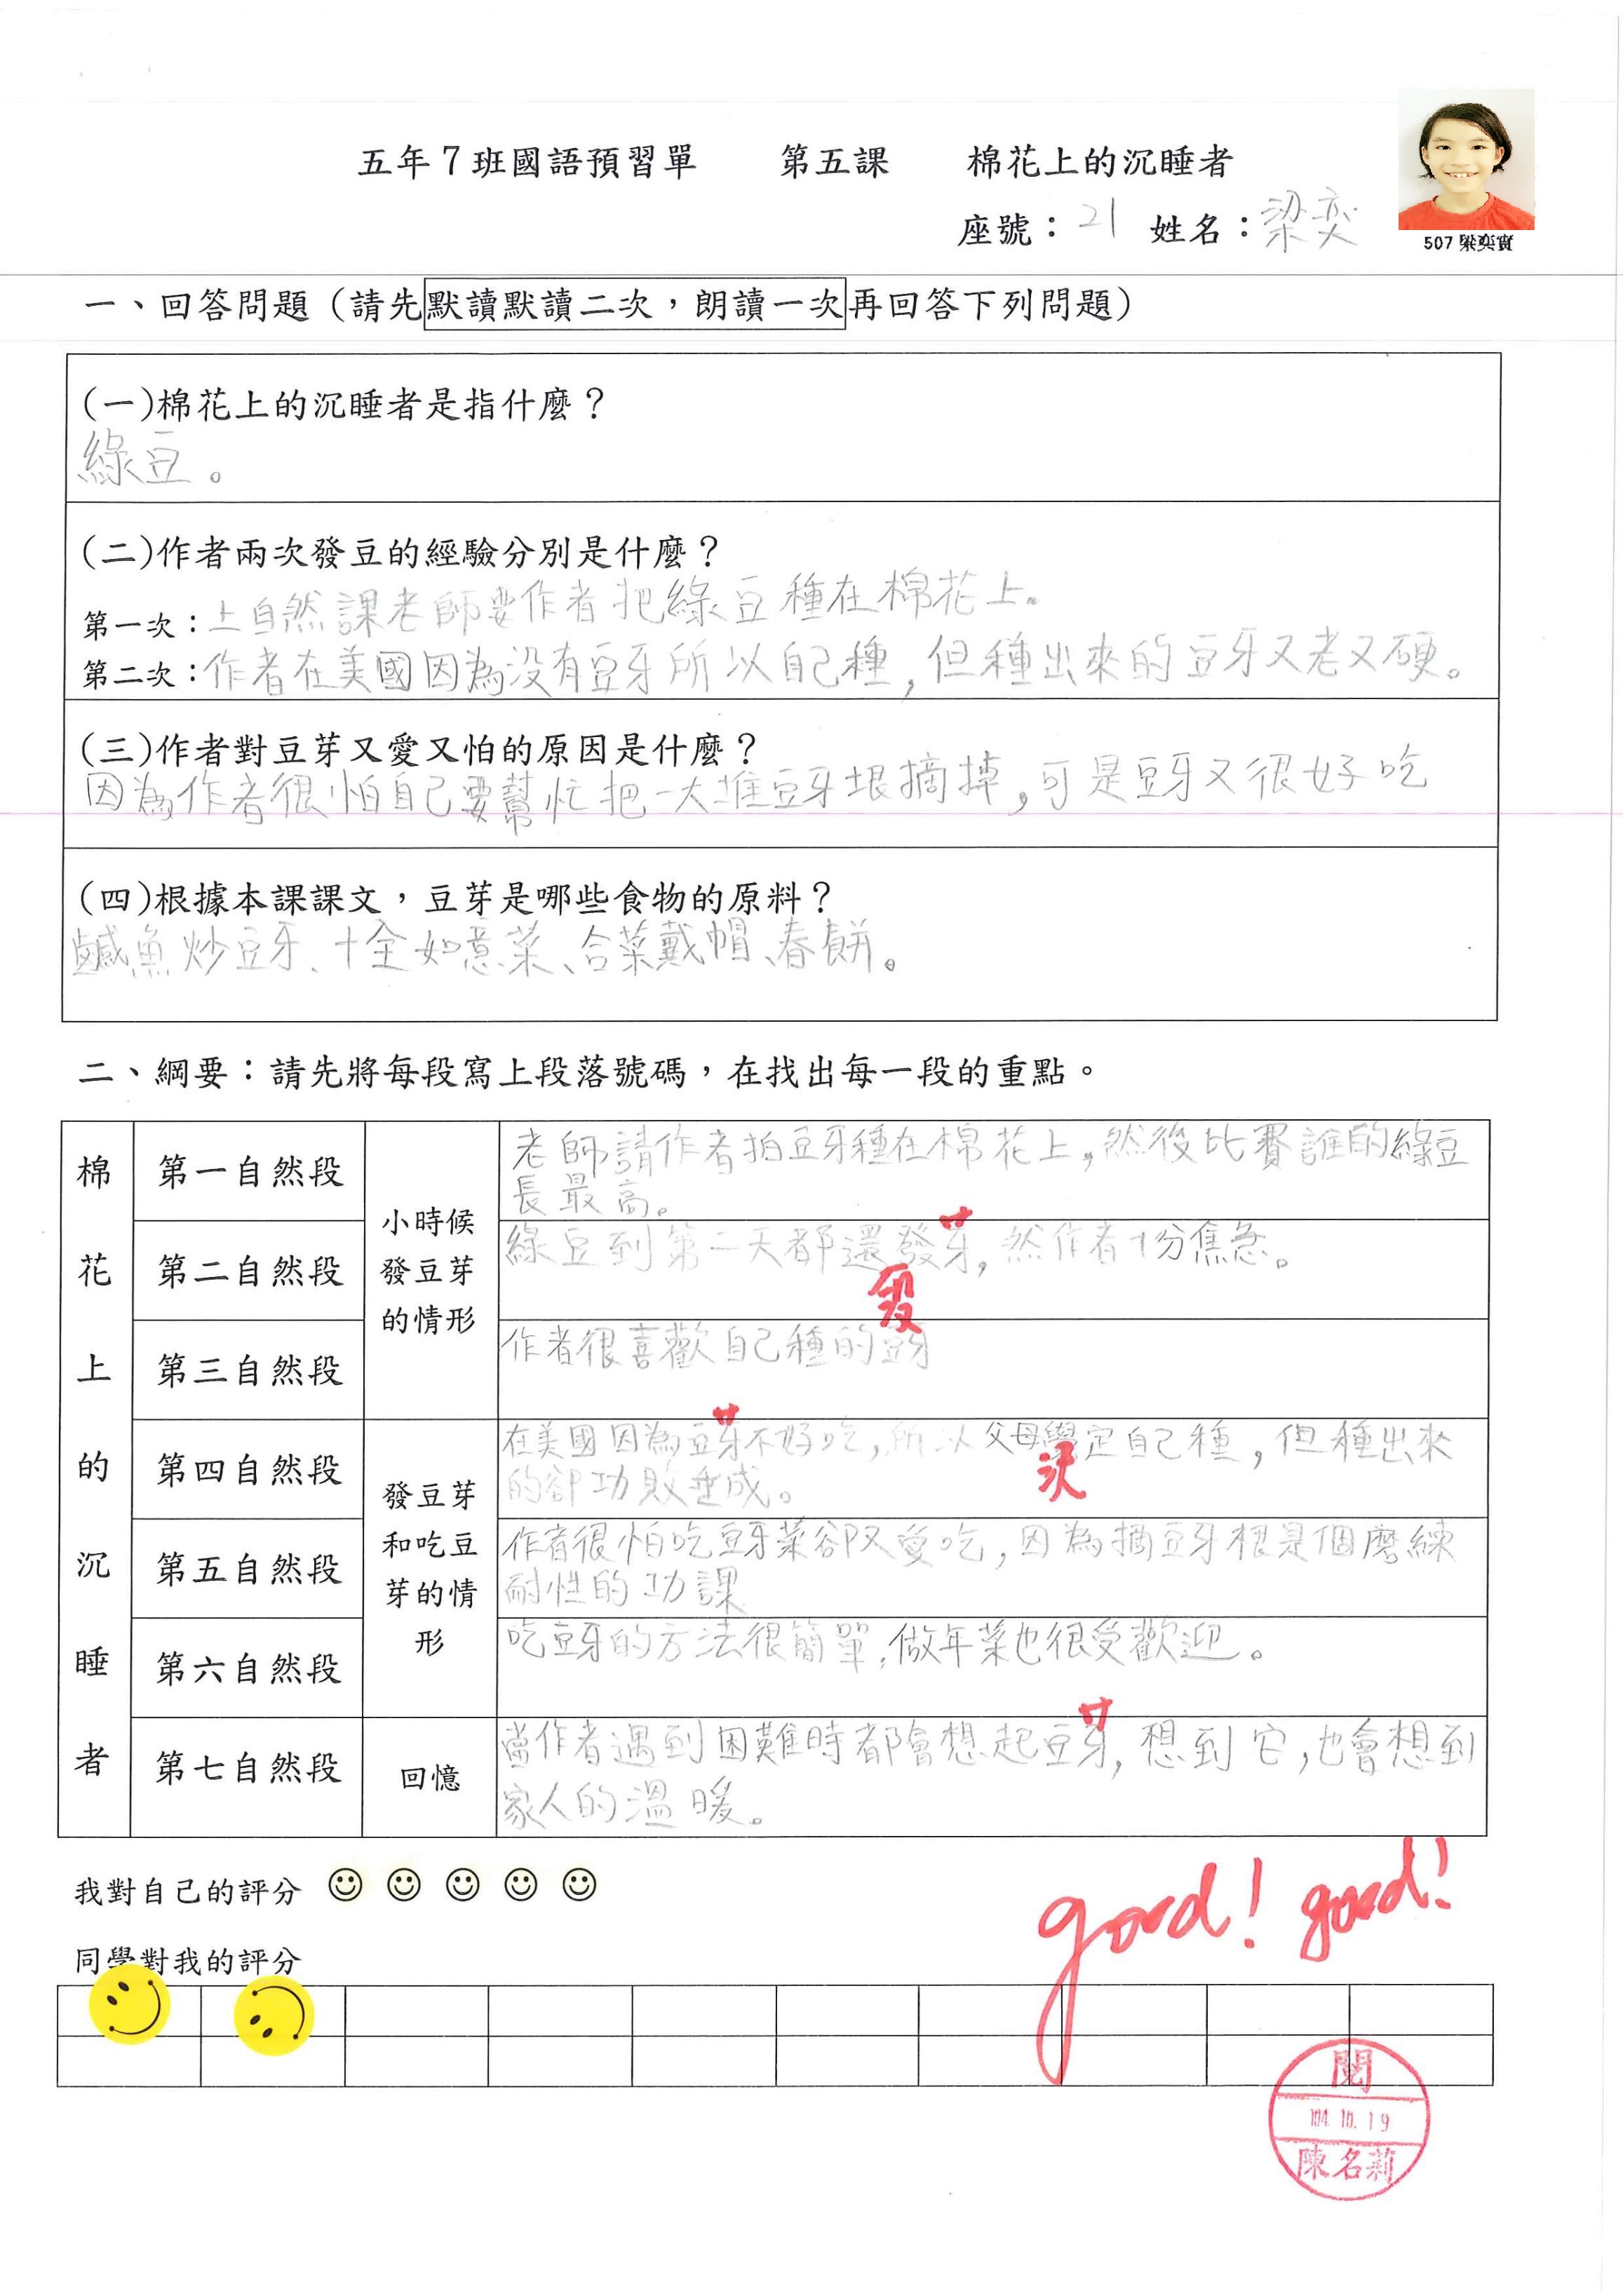 五年7班國語預習單　第五課　棉花上的沉睡者
座號：21 姓名：梁奕
507 梁奕寶
一、回答問題（請先默讀默讀二次，朗讀一次再回答下列問題）
(一)棉花上的沉睡者是指什麼？
綠豆。
(二)作者兩次發豆的經驗分別是什麼？
第一次：上自然課老師要作者把綠豆種在棉花上。
第二次：作者在美國因為沒有豆牙所以自己種，但種出來的豆牙又老又硬。
(三)作者對豆芽又愛又怕的原因是什麼？
因為作者很怕自己要幫忙把一大堆豆牙垠摘掉，可是豆牙又很好吃
(四)根據本課課文，豆芽是哪些食物的原料？
鹹魚炒豆牙、十全如意菜、合菜戴帽、春餅。
二、綱要：請先將每段寫上段落號碼，在找出每一段的重點。
棉花上的沉睡者
第一自然段
小時候
發豆芽
的情形
老師請作者拍豆牙種在棉花上，然後比賽誰的綠豆
長最高。
第二自然段
綠豆到第二天都還發芽，然作者十分焦急。
沒
第三自然段
作者很喜歡自己種的豆牙
第四自然段
發豆芽
和吃豆
芽的情
形
在美國因為豆芽不好吃，所以父母定自己種，但種出來
決
的卻功敗垂成。
第五自然段
作者很怕吃豆牙菜卻又愛吃，因為摘豆牙根是個磨練
耐性的功課
第六自然段
吃豆牙的方法很簡單，做年菜也很受歡迎。
第七自然段
回憶
當作者遇到困難時都會想起豆芽，想到它，也會想到
家人的溫暖。
我對自己的評分
同學對我的評分
good! good!
閱
104.10.19
陳名莉